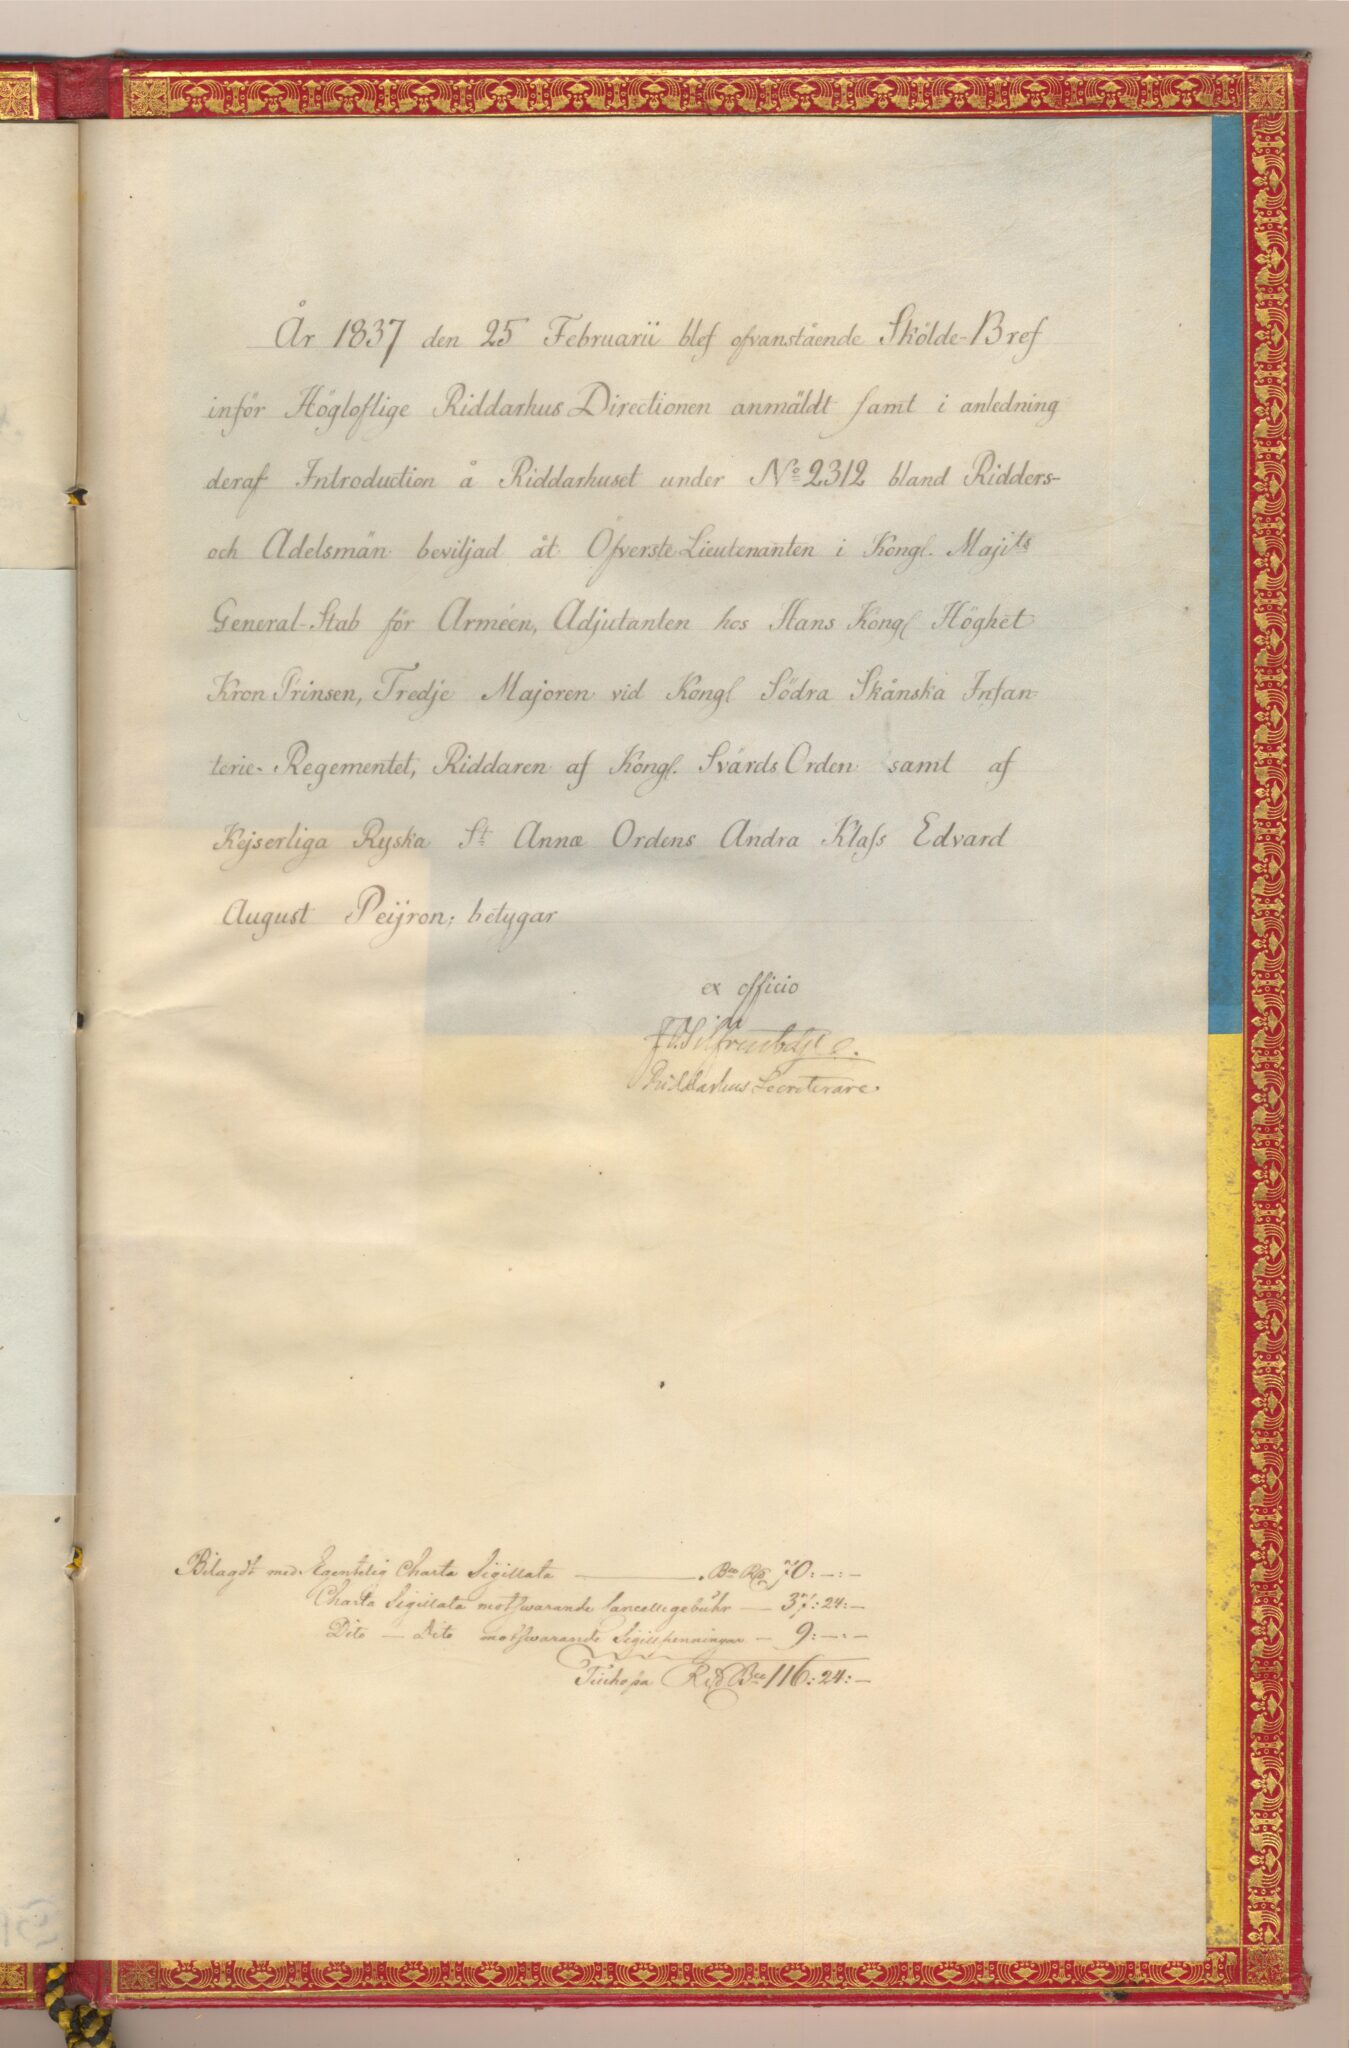 År 1837 den 25 Februarii blef ofvanstående Skölde-Bref
inför Högloflige Riddarhus Directionen anmäldt samt i anledning
deraf Introduction å Riddarhuset under No 2312 bland Ridders-
och Adelsmän beviljad åt Öfverste Lieutenanten i Kongl. Majits
General-Stab för Arméen, Adjutanten hos Hans Kongl Höghet
Kron Prinsen, Tredje Majoren vid Kongl Södra Skånska Infan-
terie-Regementet, Riddaren af Kongl. Svärds Orden samt af
Kejserliga Ryska St Annæ Ordens Andra Klass Edvard
August Peijron; betygar
ex officio
Riddarhus Secreterare.
Bilagdt med Egentelig Charta Sigillata Bco Rd 70:-:-
Charta Sigillata motsvarande Cancelligebühr - 37:24:-
Dito - Dito motsvarande Sigillpenningar - 9:-:-
Tillhopa Rd Bco 116:24:-